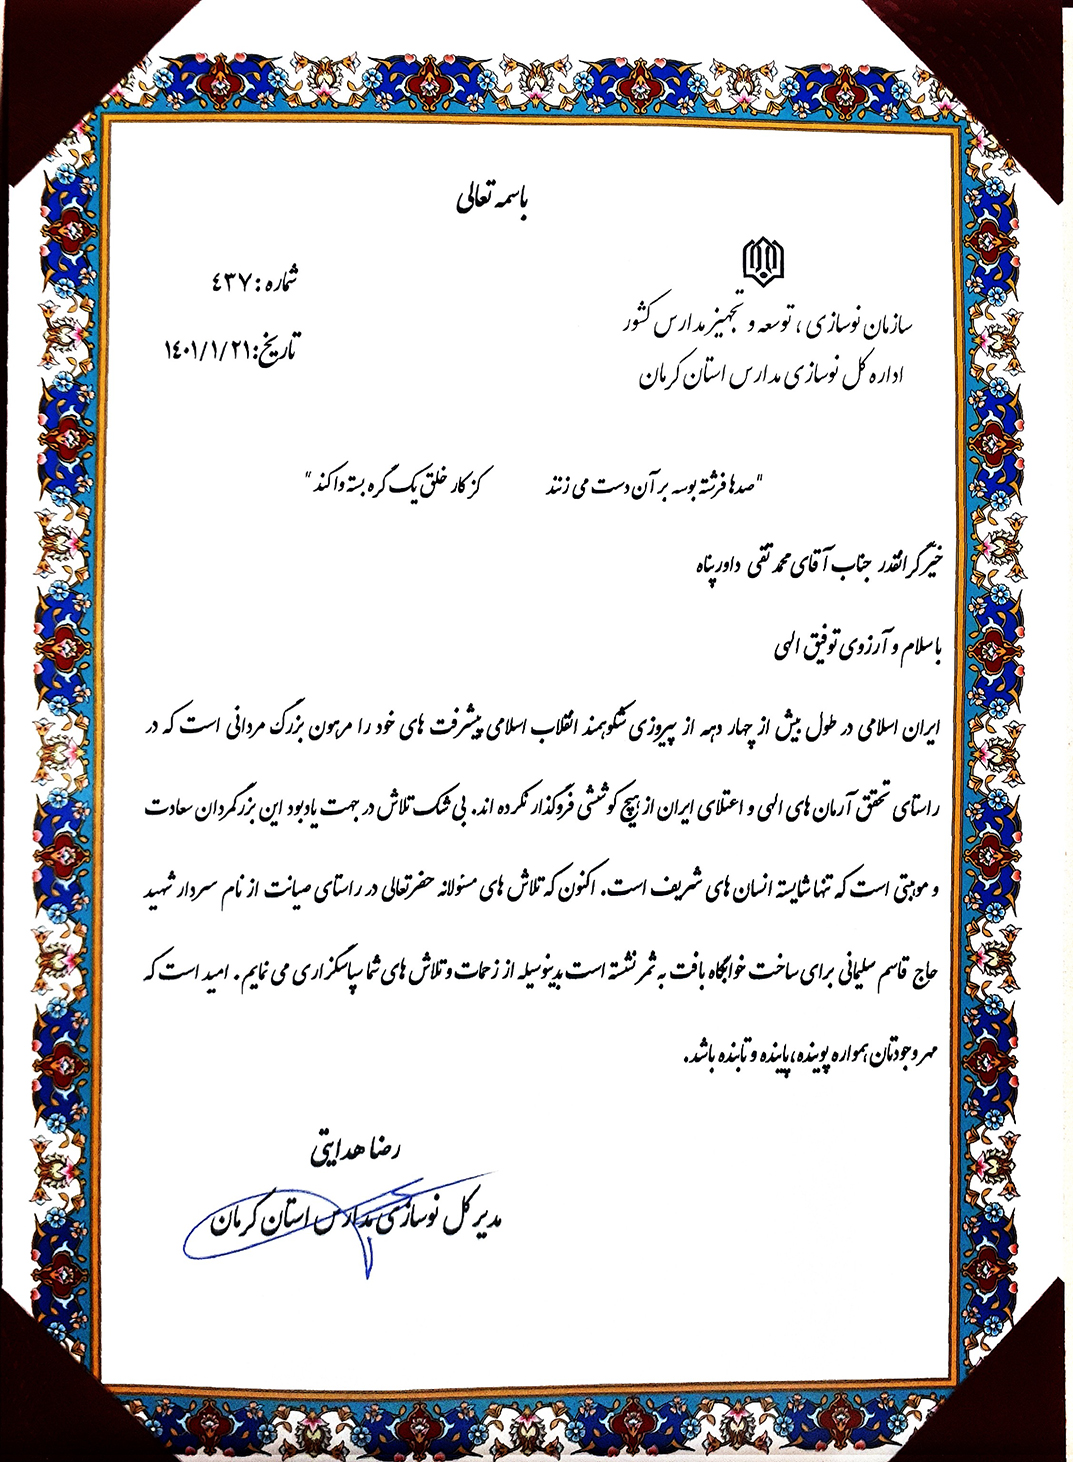 باسمه تعالی
شماره : ٤٣٧
تاریخ: ١٤٠١/١/٢١
سازمان نوسازی ، توسعه و تجهیز مدارس کشور
اداره کل نوسازی مدارس استان کرمان
"صدها فرشته بوسه بر آن دست می زنند کز کار خلق یک گره بسته وا کند "
خیّر گرانقدر جناب آقای محمد تقی داورپناه
با سلام و آرزوی توفیق الهی
ایران اسلامی در طول بیش از چهار دهه از پیروزی شکوهمند انقلاب اسلامی پیشرفت های خود را مرهون بزرگ مردانی است که در
راستای تحقق آرمان های الهی و اعتلای ایران از هیچ کوششی فروگذار نکرده اند. بی شک تلاش در جهت یادبود این بزرگمردان سعادت
و موهبتی است که تنها شایسته انسان های شریف است. اکنون که تلاش های مسئولانه حضرتعالی در راستای صیانت از نام سردار شهید
حاج قاسم سلیمانی برای ساخت خوابگاه بافت به ثمر نشسته است بدینوسیله از زحمات و تلاش های شما سپاسگزاری می نمایم . امید است که
مهر وجودتان همواره پوینده، پاینده و تابنده باشد.
رضا هدایتی
مدیر کل نوسازی مدارس استان کرمان